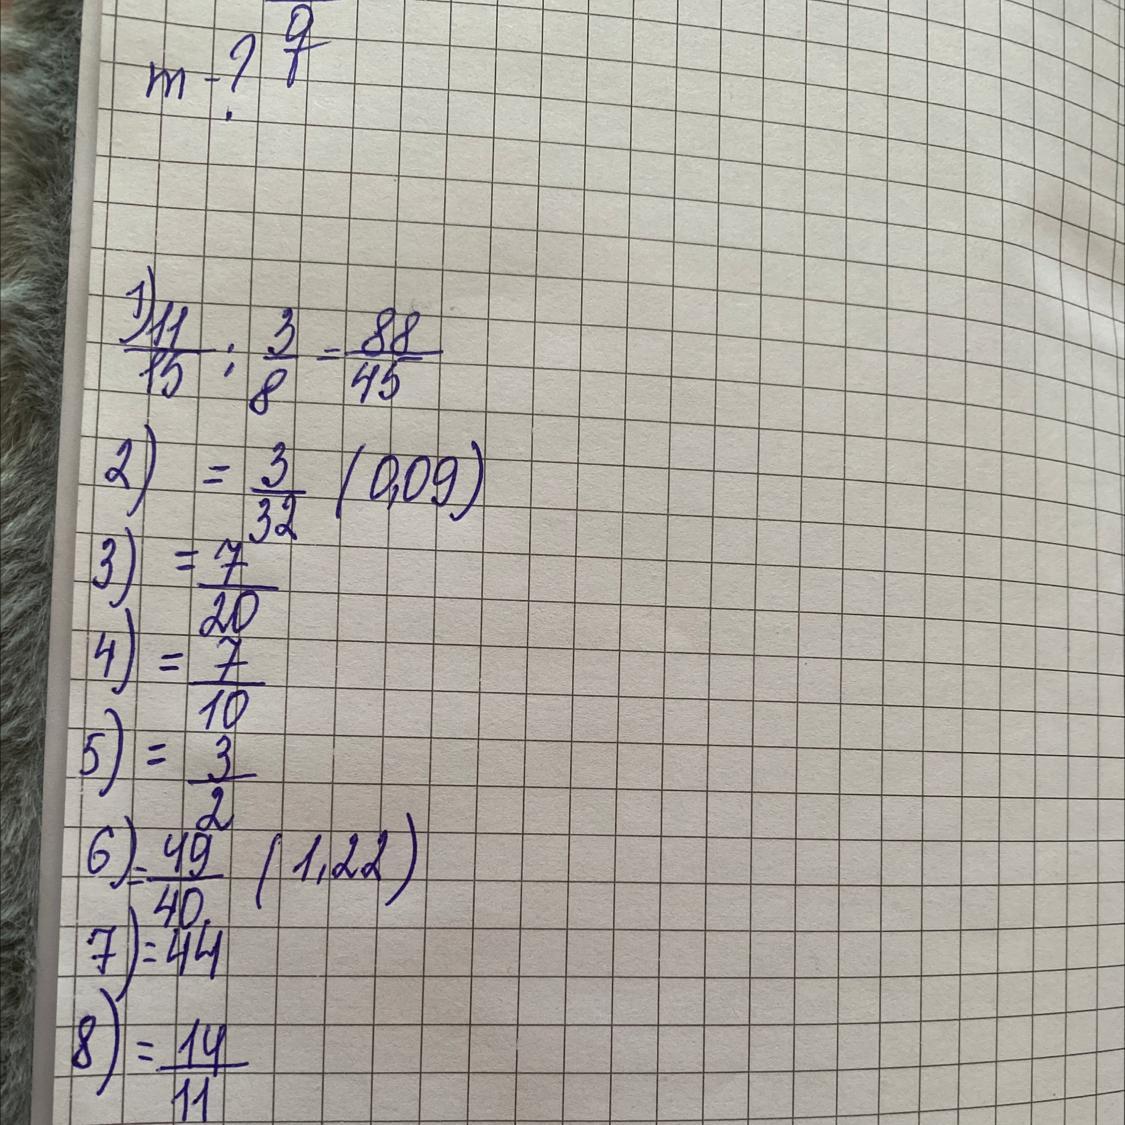 m - ? g/7
1) 11/15 : 3/8 = 88/45
2) = 3/32 (0,09)
3) = 7/20
4) = 7/10
5) = 3/2
6) = 49/40 (1,22)
7) = 44
8) = 14/11